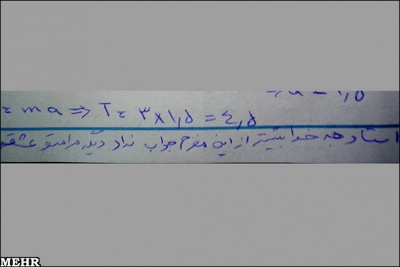 = ma ⇒ T = ۳×۱٫۵ = ٤٫۵
استاد به خدا بیشتر از این مغزم جواب نداد دیگه مرامتو عشقه
MEHR